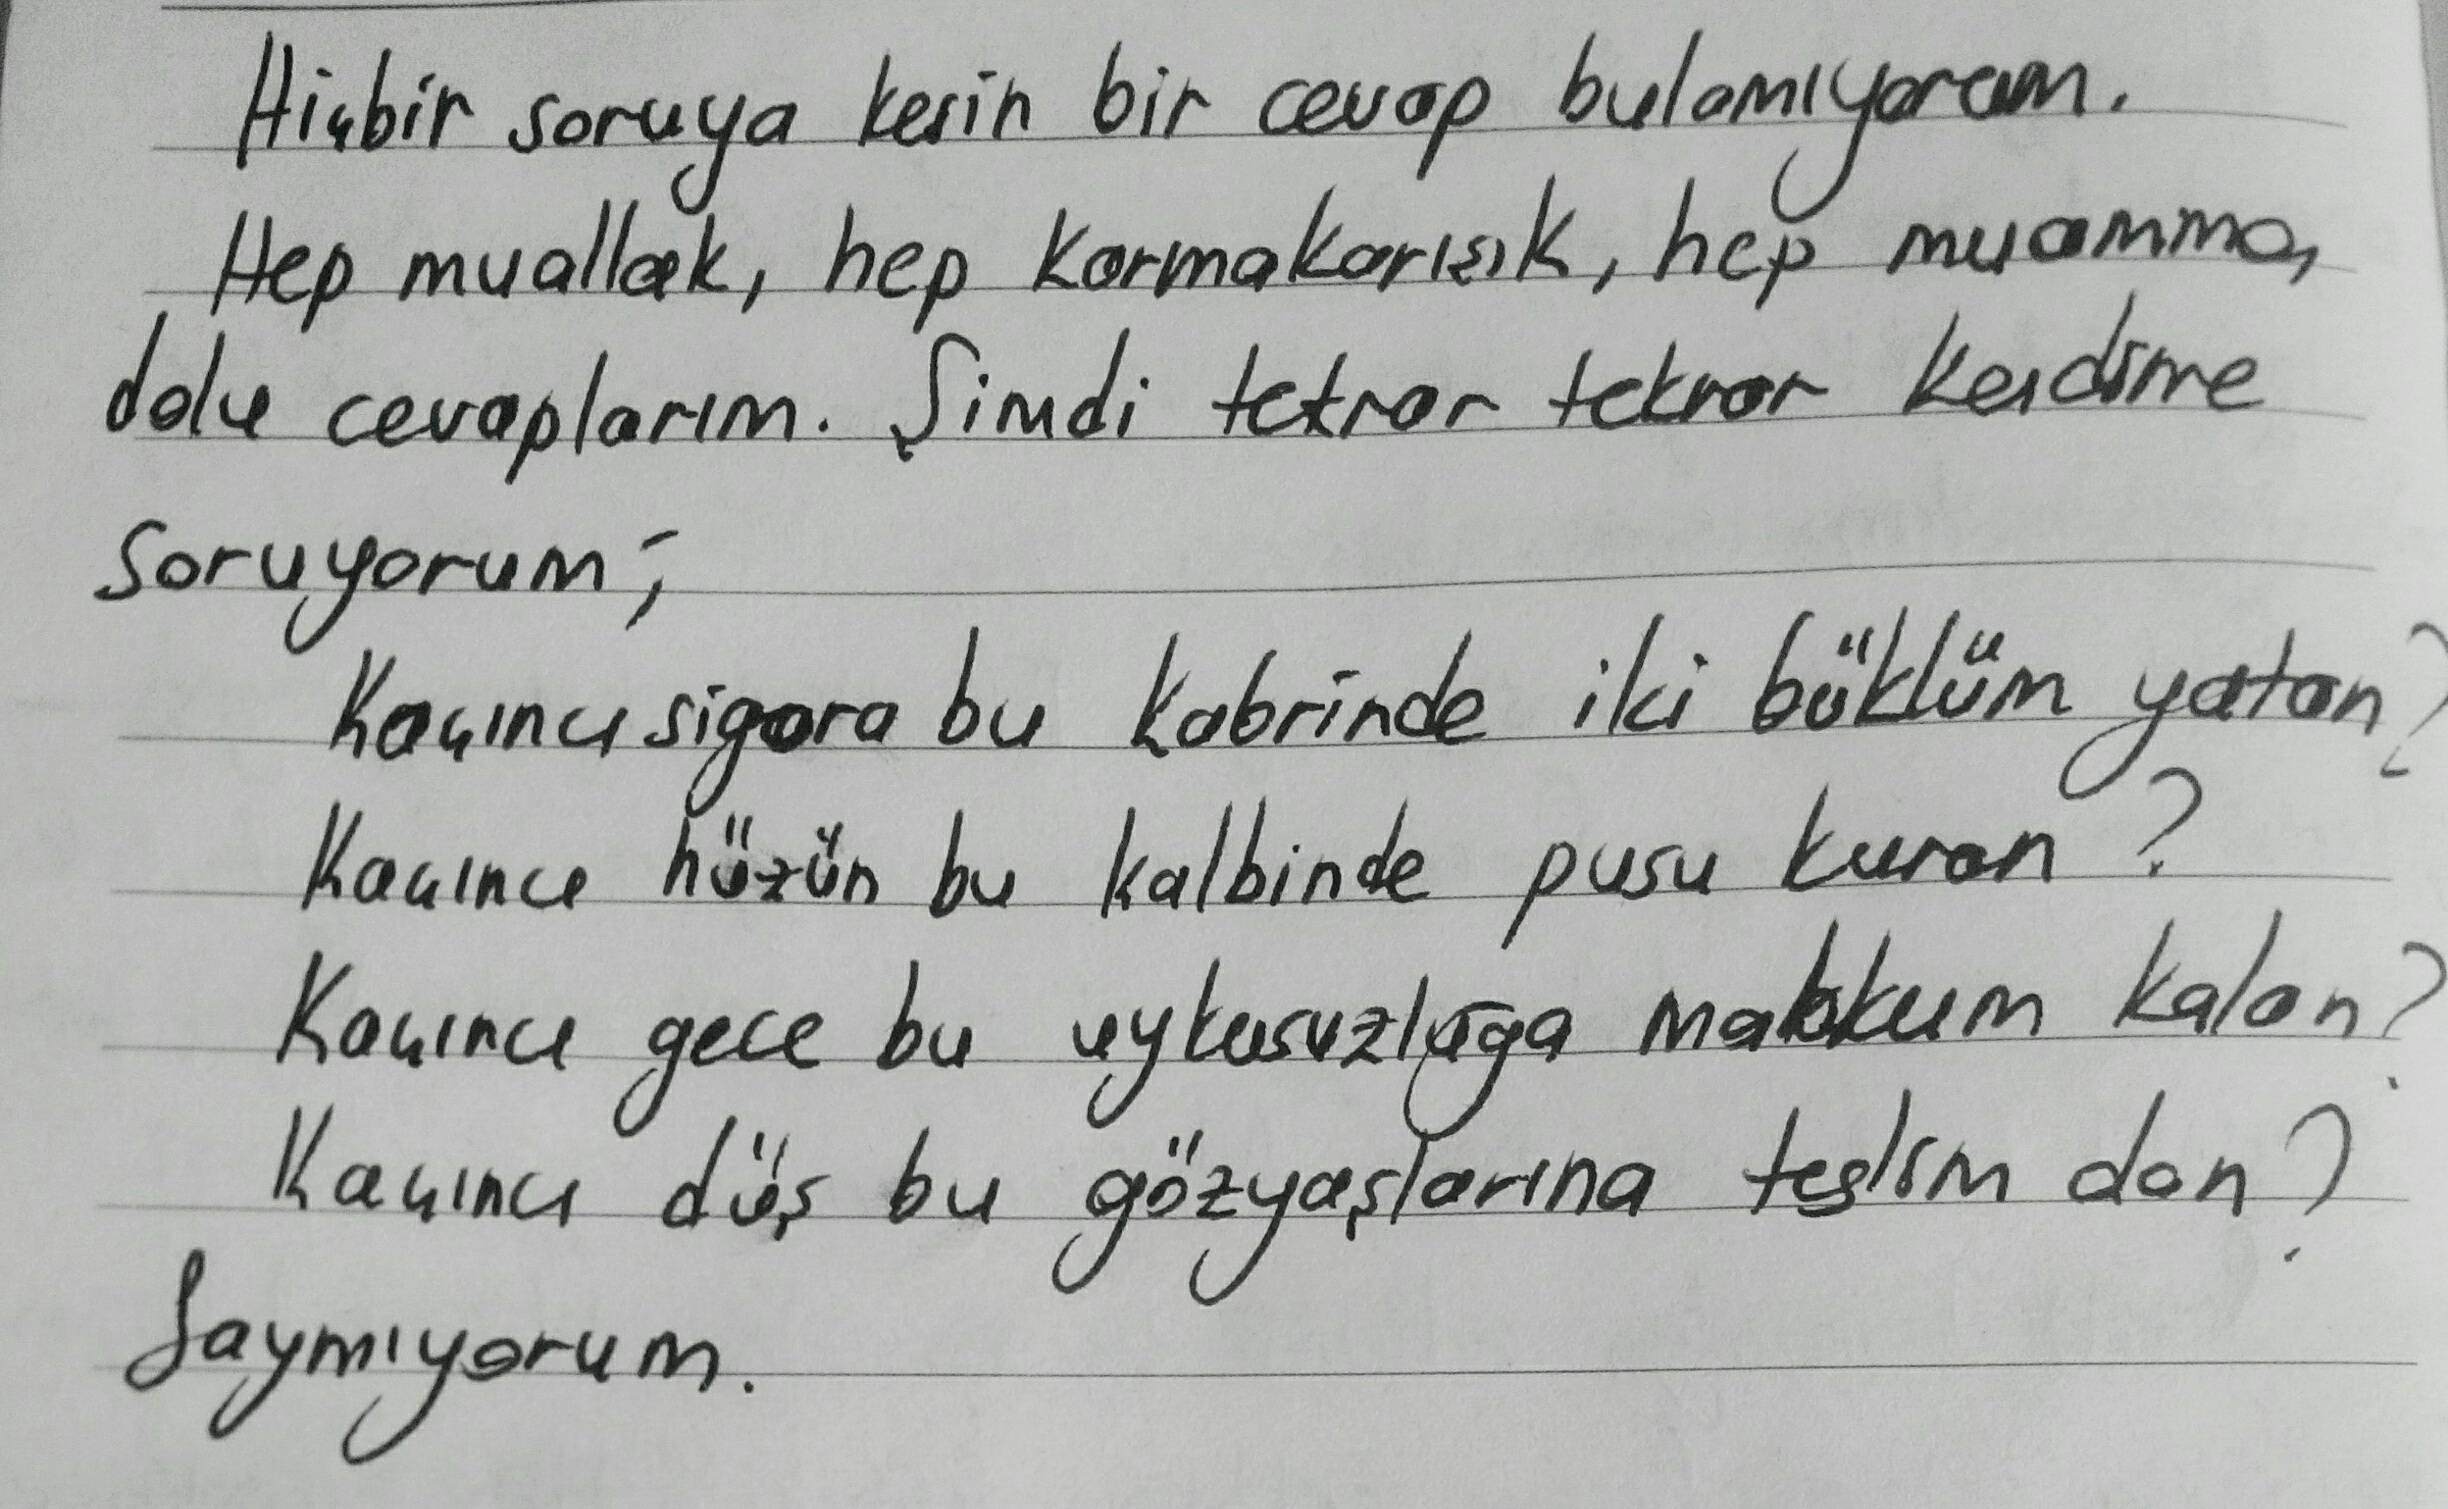 Hiçbir soruya kesin bir cevap bulamıyorum.
Hep muallak, hep karmakarışık, hep muamma,
dolu cevaplarım. Şimdi tekrar tekrar kendime
soruyorum;
Kaçıncı sigara bu kabrinde iki büklüm yatan?
Kaçıncı hüzün bu kalbinde pusu kuran?
Kaçıncı gece bu uykusuzluğa mahkum kalan?
Kaçıncı düş bu gözyaşlarına teslim olan?
Saymıyorum.